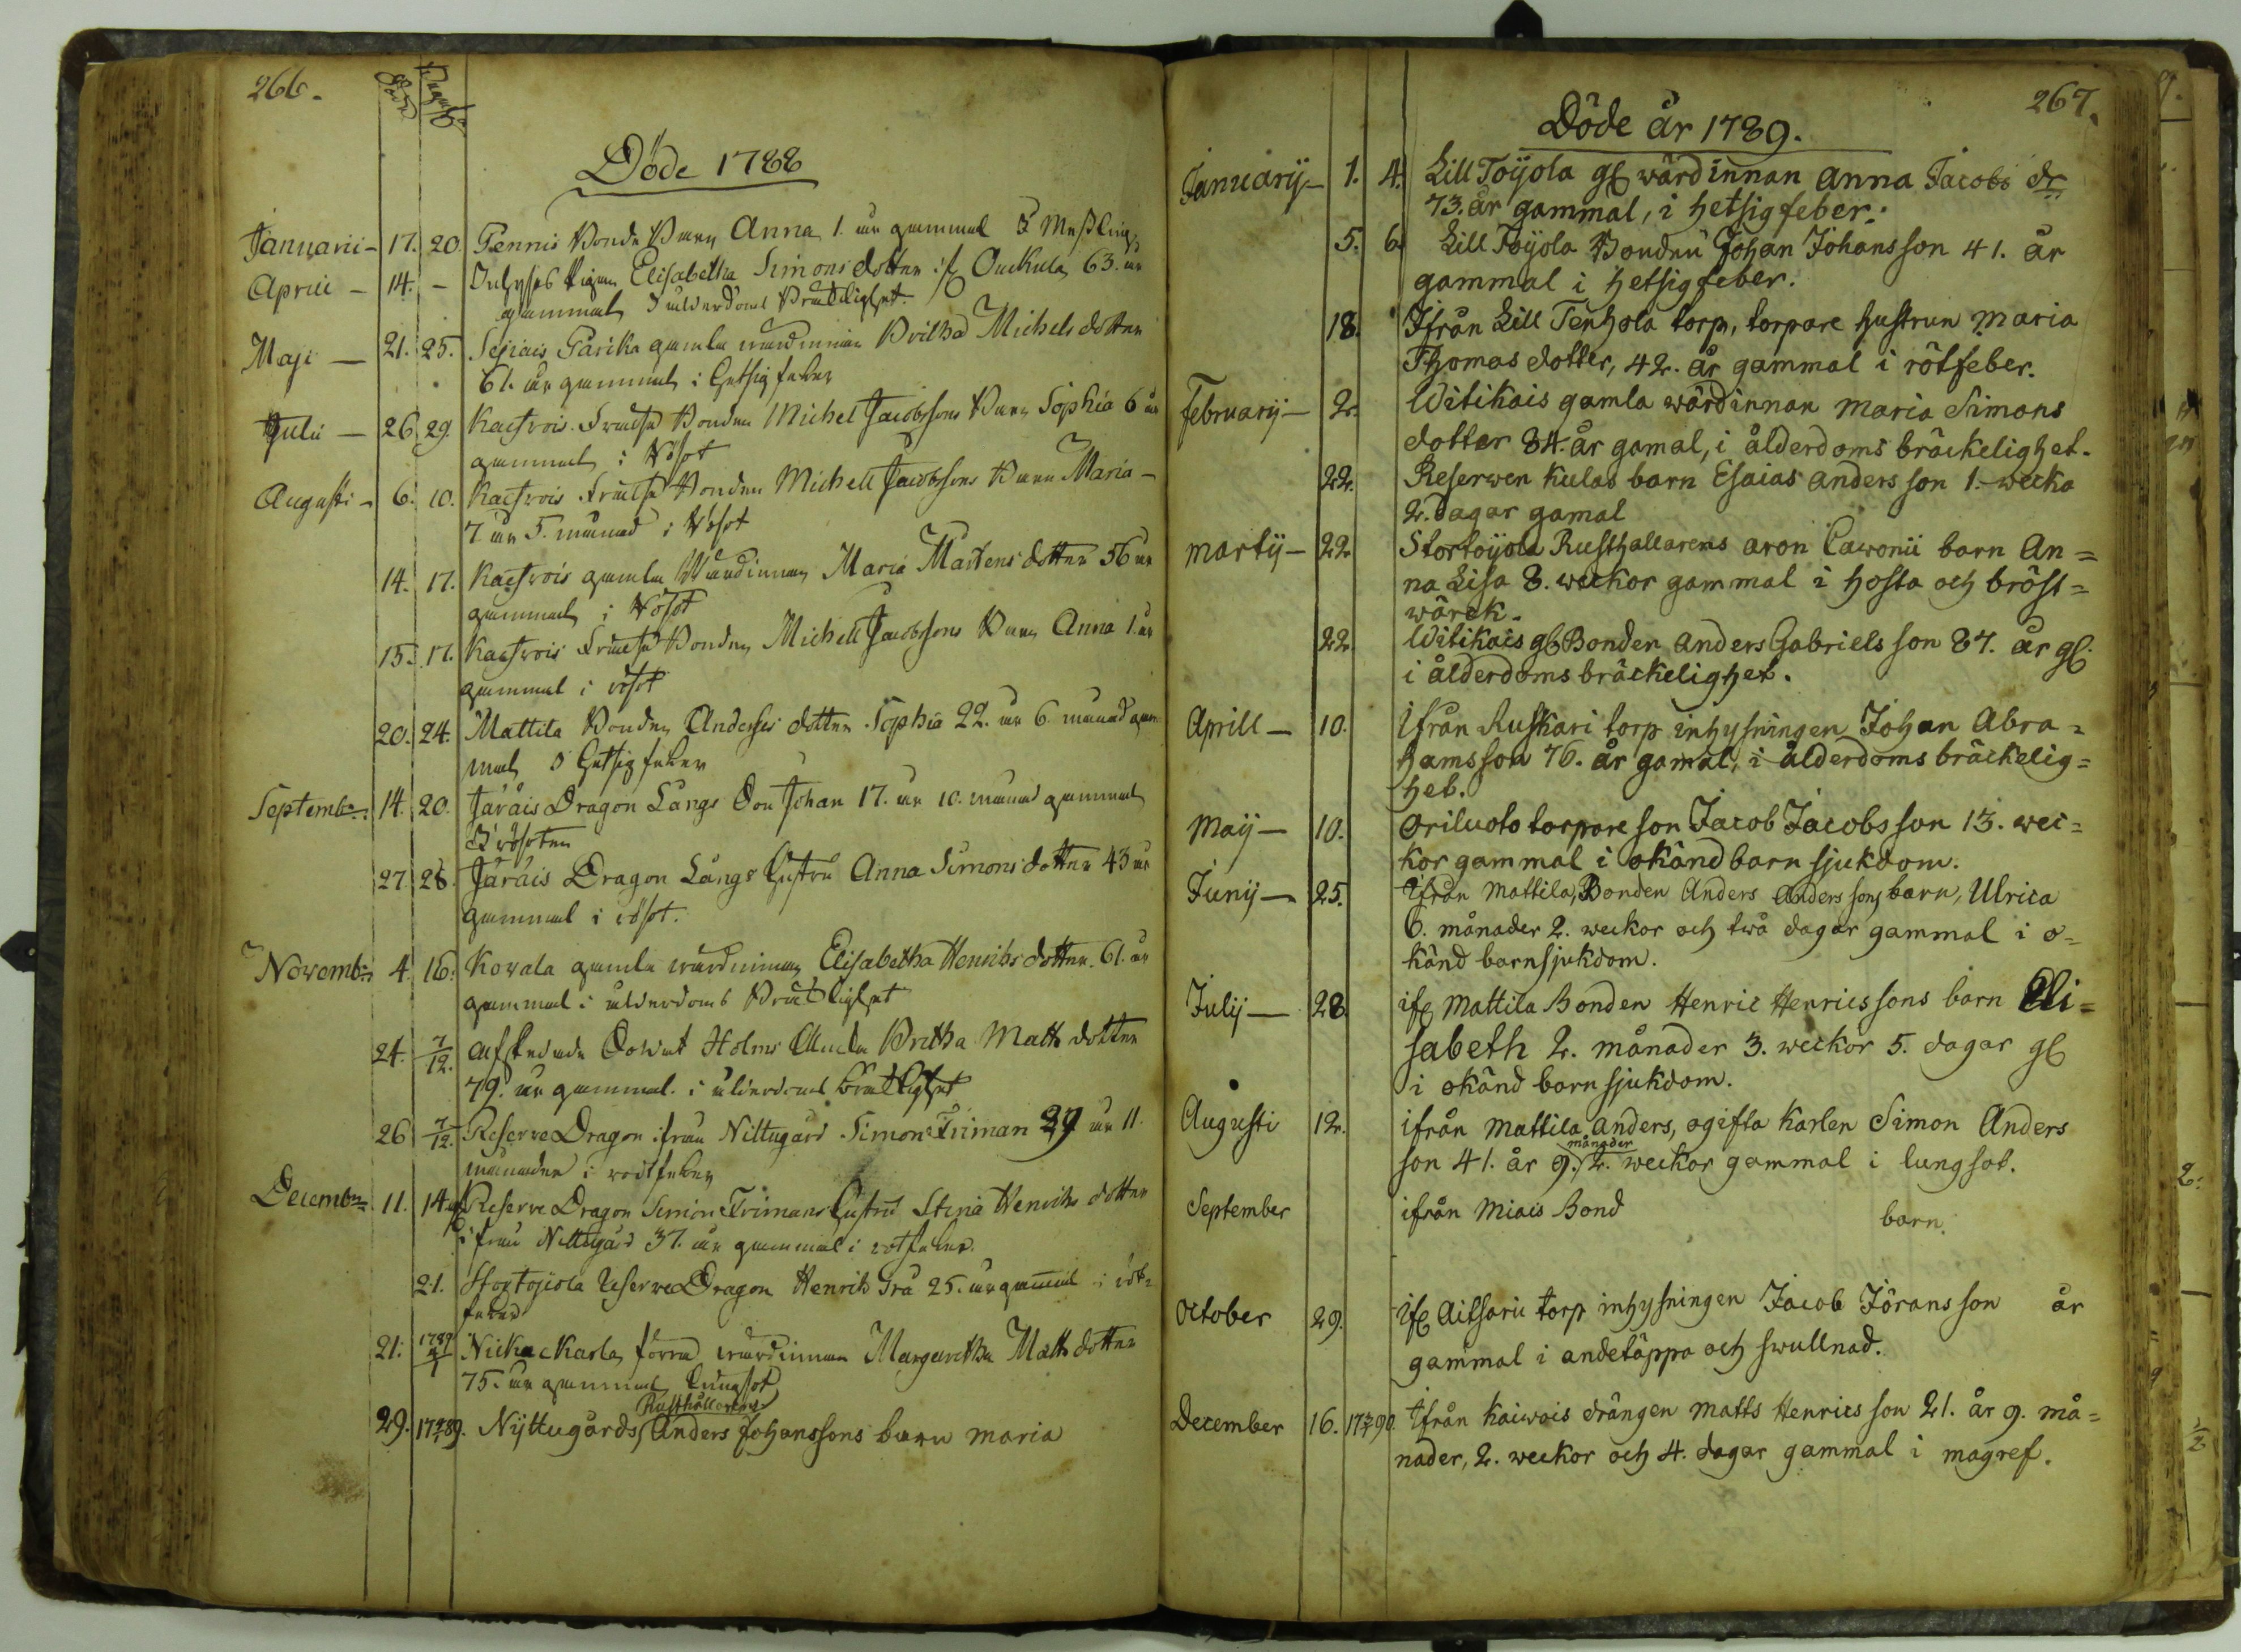 266.
Död
Begrafd
Döde 1788
Januarii - 17. 20. Pennis Bonde Barn Anna 1. år gammal I Meßling
Aprill - 14. - Inhyses Pigan Elisabetha Simons dotter if Ouckula 63. år
gammal I ålderdoms Bräcklighet
Maji - 21. 25. Sejiais Parika gamla wärdinnan Britha Michels dotter
61. år gammal i hetsig feber
Julii - 26 29. Kaesrois Frälse Bonden Michel Jacobssons Barn Sophia 6 år
gammal i Rösot
Augusti - 6. 10. Kaesrois Frälse Bonden Michell Jacobssons Barn Maria -
7 år 5. månad i Rösot
14. 17. Kaesrois gamla Wärdinnan Maria Mårtens dotter 56 år
gammal i Rösot
15. 17. Kaesrois Frälse Bonden Michell Jacobssons Barn Anna 1. år
gammal i rösot
20. 24. Mattila Bonden Anderses dotter Sophia 22. år 6 månad gam
mal I hetsig feber
Septembr: 14. 20. Järäis Dragon Långs Son Johan 17. år 10. månad gammal
I rösoten
27 28. Järäis Dragon Långs Hustru Anna Simons dotter 43 år
gammal i rösot.
Novembr: 4. 16. Kovala gamla wärdinnan Elisabetha Henriks dotter. 61. år
gammal i ålderdoms Bräcklighet
24. 7/12. afskedade Soldat Holms Enka Britha Matts dotter
79. år gammal. i ålderdoms bräcklighet
26 7/12. Reserve Dragon ifrån Nittugård Simon Friman 29 år 11.
månader i rötfeber
Decembr: 11. 14 Reserve Dragon Simon Frimans Hustru Stina Henriks dotter
ifrån Nittugård 37. år gammal i rotfeber.
21. Stortojiola Reserve Dragon Henrik Grå 25. år gammal i röt-
feber
21. 1789 Nickackarla förra wärdinnan Margaretha Matts dotter
75. år gammal Lungsot
Rusthållarens
29. 1789. Nÿttugårds Anders Johanssons barn maria
267.
Döde år 1789.
Januarÿ - 1. 4. Lill Toÿola gl wärdinnan Anna Jacobs dr
73. år gammal, i hetsigfeber.
5. 6. Lill Toÿola Bonden Johan Johansson 41. år
gammal i hetsigfeber.
18. Ifrån Lill Tenhola torp, torpare hustrun Maria
Thomas dotter, 42. år gammal i rötfeber.
Februarÿ - 2. Witikais gamla wärdinnan Maria Simons
dotter 84. år gamal, i ålderdoms bräckelighet.
22. Reserwen Kulas barn Esaias Anders son 1. wecka
2. dagar gamal
Martÿ - 22 Stortoÿola Rusthallarens Aron Cawonii barn An=
na Lisa 8. weckor gammal i hosta och bröst=
wärck.
22 Witikais gl Bonden Anders Gabriels son 87. år gl.
i ålderdoms bräckelighet.
Aprill - 10. Ifrån Ruskari torp inhysningen Johan Abra=
hamsson 76. år gamal, i ålderdoms bräckelig=
het.
Maÿ - 10. Oriluoto torpare son Jacob Jacobs son 13. wec=
kor gammal i okänd barn sjukdom.
Junÿ - 25. Ifrån Mattila, Bonden Anders Anders sons barn, Ulrica
6. månader 2. weckor och twå dagar gammal i o=
känd barnsjukdom.
Julÿ - 28 if Mattila Bonden Henric Henrics sons barn Eli=
sabeth 2. månader 3. weckor 5. dagar gl
i okänd barn sjukdom.
Augusti 12. ifrån Mattila Anders, ogifta Karlen Simon Anders
månader
son 41. år 9. 2. weckor gammal i lungsot.
September ifrån Miais Bond barn
October 29. if Aitsarii torp inhysningen Jacob Jörans son år
gammal i andetäppa och swullnad.
December 16. 1790. Ifrån Kaiwois drängen Matts Henrics son 21. år 9. må=
nader, 2. weckor och 4. dagar gammal i magref.